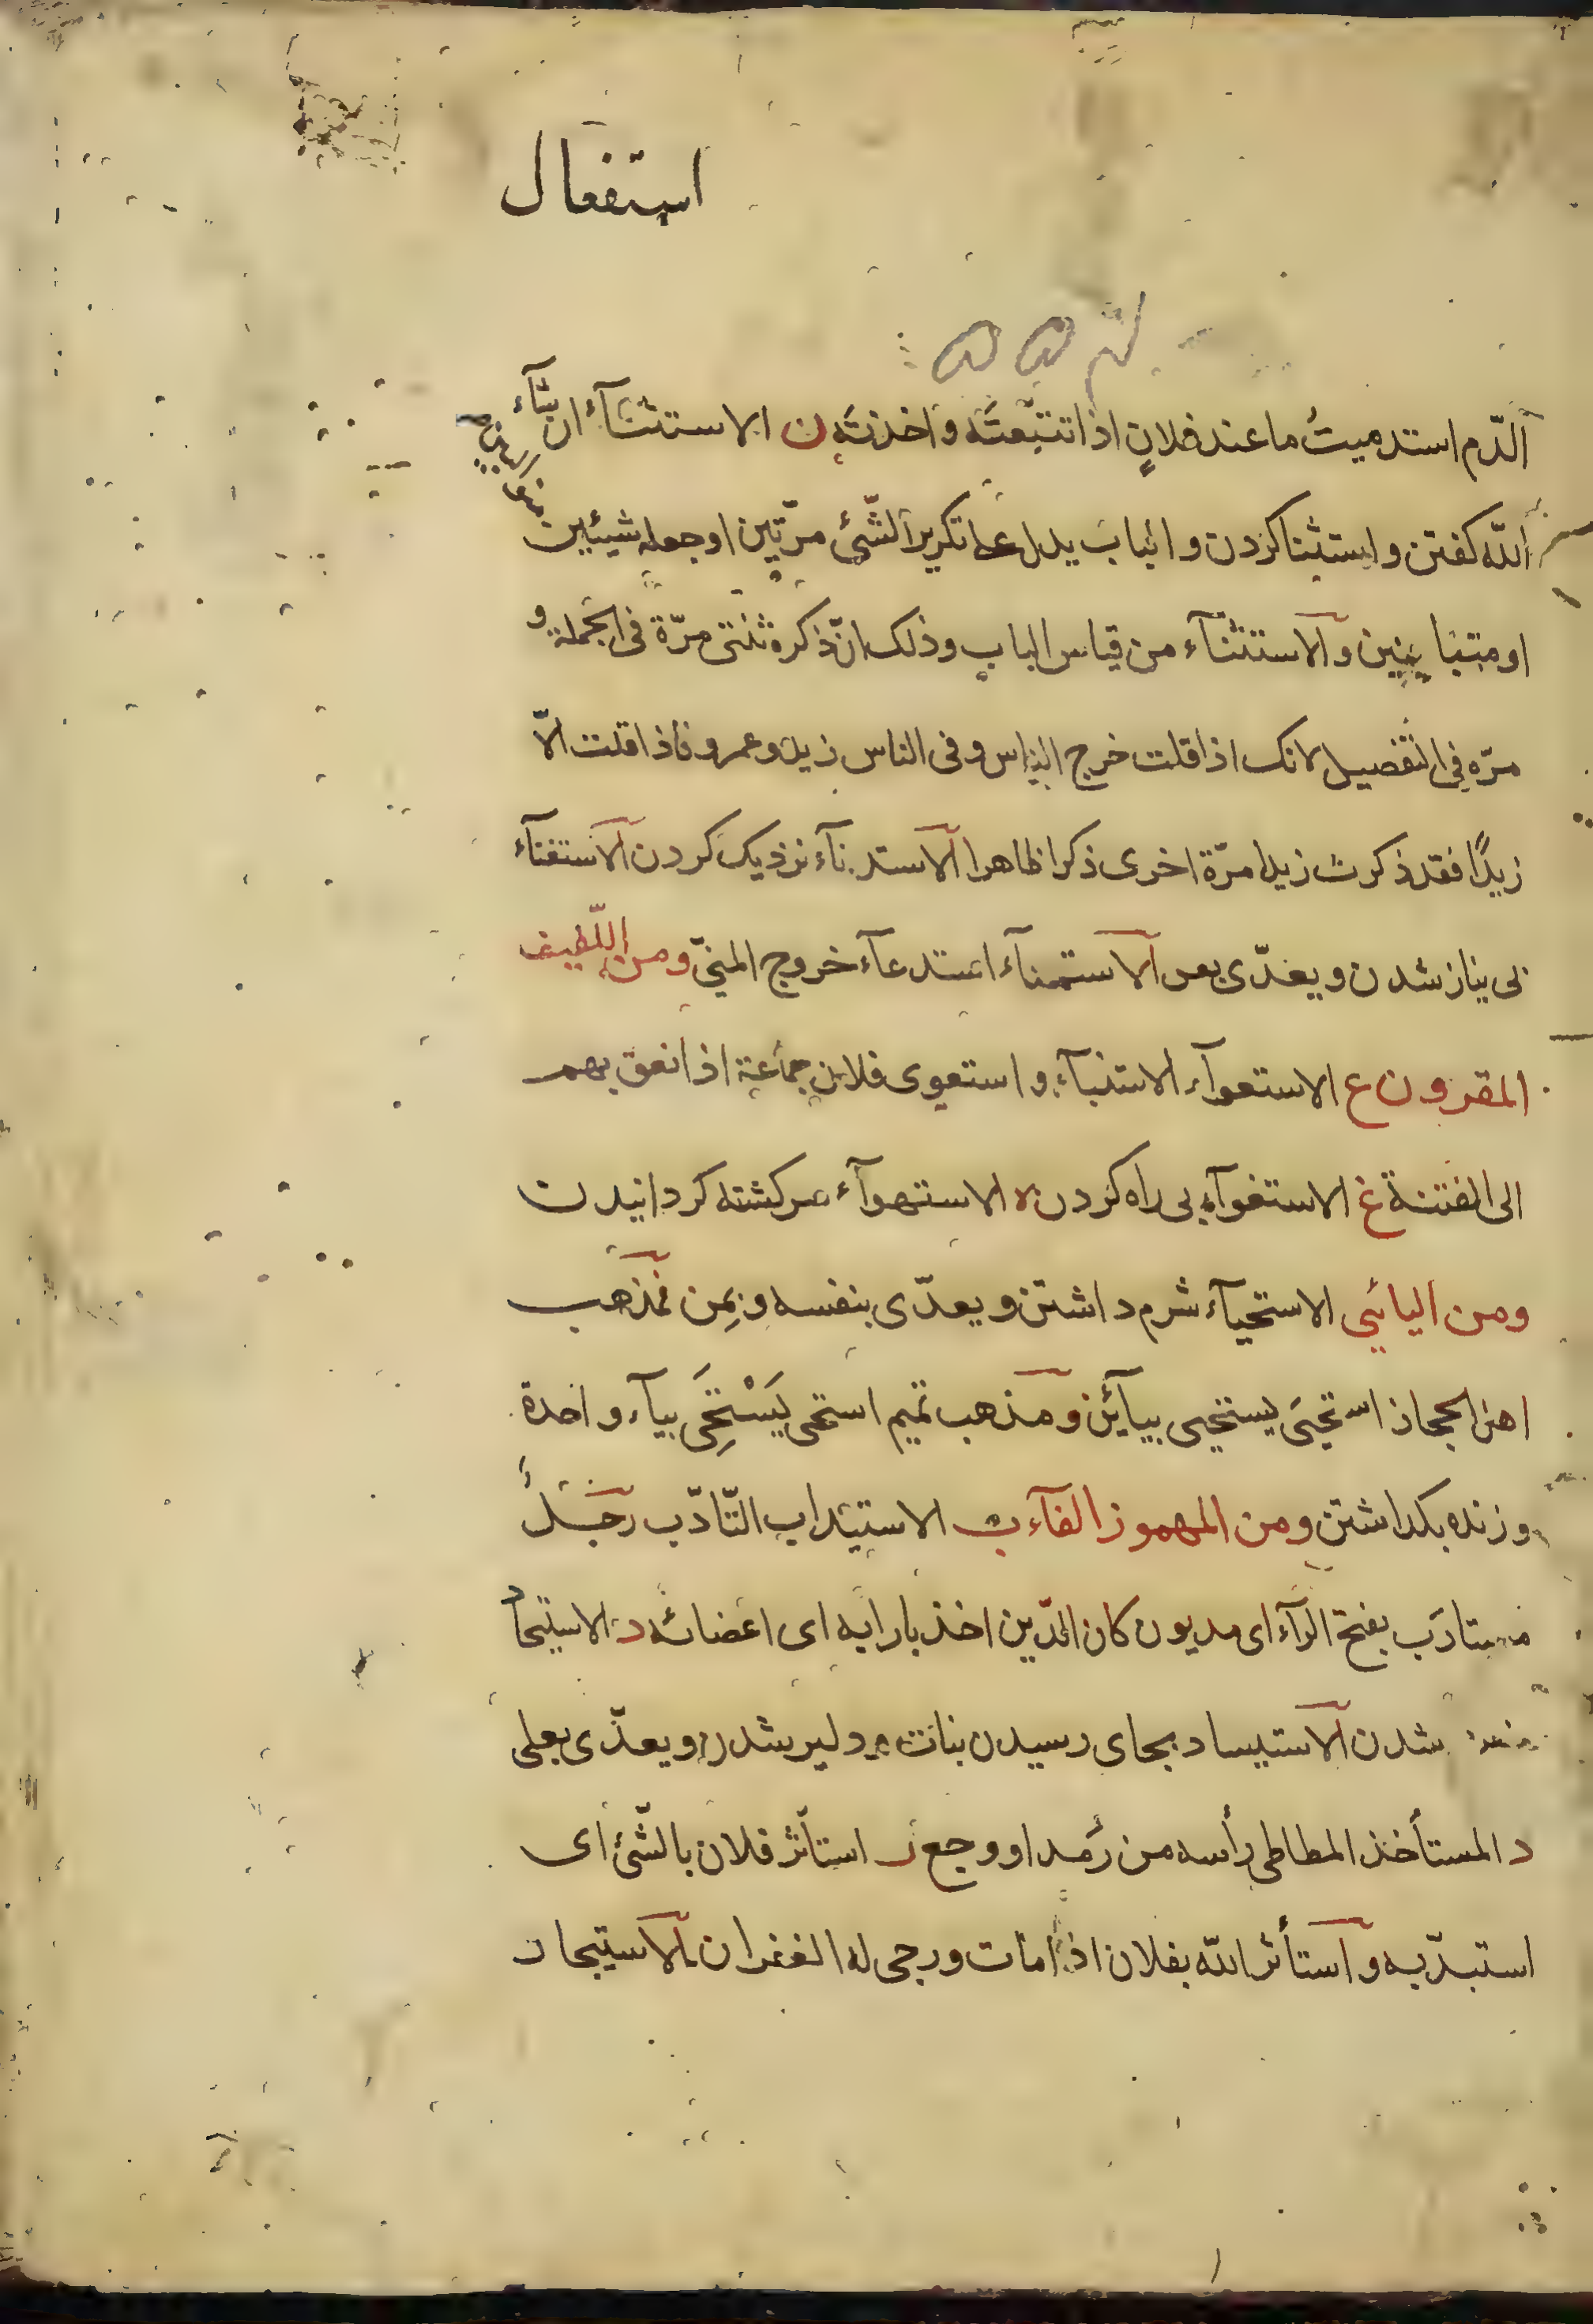 استفعال
الدّم استدميتُ ما عند فلانٍ اذا تتبّعتَه واخذتَه ن الاستثنآء ان شآء
اللّه كفتن واستثنا كردن والباب يدل على تكرير الشّئ مرّتين او جعله شيئين
او متبا ينين والاستثنآء من قياس الباب وذلك انّ ذكره ثنتى مرّة فى الجملة و
مرّه فى التفصيل لانك اذا قلت خرج الناس وفى الناس زيد وعمرو فاذا قلت الاّ
زيدًا فقد ذكرت زيدا مرّة اخرى ذكرا ظاهرا الاستدنآء نزديك كردن الاستغنآء
بى نياز شدن ويعدّى بعن الاستمنآء استدعآء خروج المنىّ ومن اللّفيف
المقرون ع الاستعوآء الاستنبآء واستعوى فلان جماعة اذا نعق بهم
الى الفتنة غ الاستغوآء بى راه كردن ه الاستهوآء سركشته كردانيدن
ومن اليائى الاستحيآء شرم داشتن ويعدّى بنفسه وبمِن فمذهب
اهل الحجاز استحيىَ يستحيى بيآئين ومذهب تميم استحى يَسْتَحِى بيآء واحدة
وزنده بكداشتن ومن المهموز الفآء ب الاستيراب التّأدّب رجلٌ
مستارَب بفتح الرآء اى مديون كان الدّين اخذ بارابه اى اعضائه د الاستيحاد
شدن الاستيساد بجاى رسيدن بنات و دلير شدن ويعدّى بعلى
د المستأخذ المطاطى رأسه من رَمد او وجع ر استأثر فلان بالشّئ اى
استبدّ به واستأثر اللّه بفلان اذا مات ورجى له الغفران الاستيجار